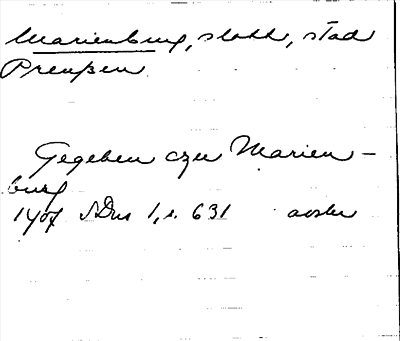 Marienburg, slott, stad
Preußen
Gegeben czu Marien-
burg
SDns 1, s. 631 avskr